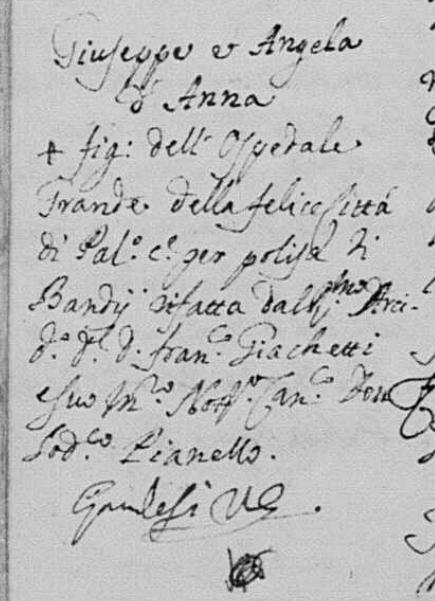 Giuseppe e Angela
d'Anna
+ fig: dell' Ospedale
Grande della felice Città
di Pal.º c.º per polisa di
Bandij rifatta dall' Arci-
d.º D. Fran.co Giachetti
e suo M.ro Not.º Can.co Don
Lod.co Pianello.
V G.